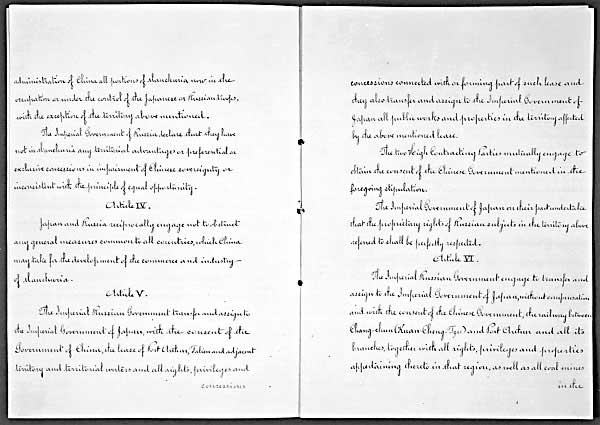 administration of China all portions of Manchuria now in the
occupation or under the control of the Japanese or Russian troops,
with the exception of the territory above mentioned.
The Imperial Government of Russia declare that they have
not in Manchuria any territorial advantages or preferential or
exclusive concessions in impairment of Chinese sovereignty or
inconsistent with the principle of equal opportunity.
Article IV.
Japan and Russia reciprocally engage not to obstruct
any general measures common to all countries, which China
may take for the development of the commerce and industry
of Manchuria.
Article V.
The Imperial Russian Government transfer and assign to
the Imperial Government of Japan, with the consent of the
Government of China, the lease of Port Arthur, Talien and adjacent
territory and territorial waters and all rights, privileges and
concessions
concessions connected with or forming part of such lease and
they also transfer and assign to the Imperial Government of
Japan all public works and properties in the territory affected
by the above mentioned lease.
The two High Contracting Parties mutually engage to
obtain the consent of the Chinese Government mentioned in the
foregoing stipulation.
The Imperial Government of Japan on their part undertake
that the proprietary rights of Russian subjects in the territory above
referred to shall be perfectly respected.
Article VI.
The Imperial Russian Government engage to transfer and
assign to the Imperial Government of Japan, without compensation
and with the consent of the Chinese Government, the railway between
Chang-chun (Kuan-Cheng-Tzu) and Port Arthur and all its
branches, together with all rights, privileges and properties
appertaining thereto in that region, as well as all coal mines
in the